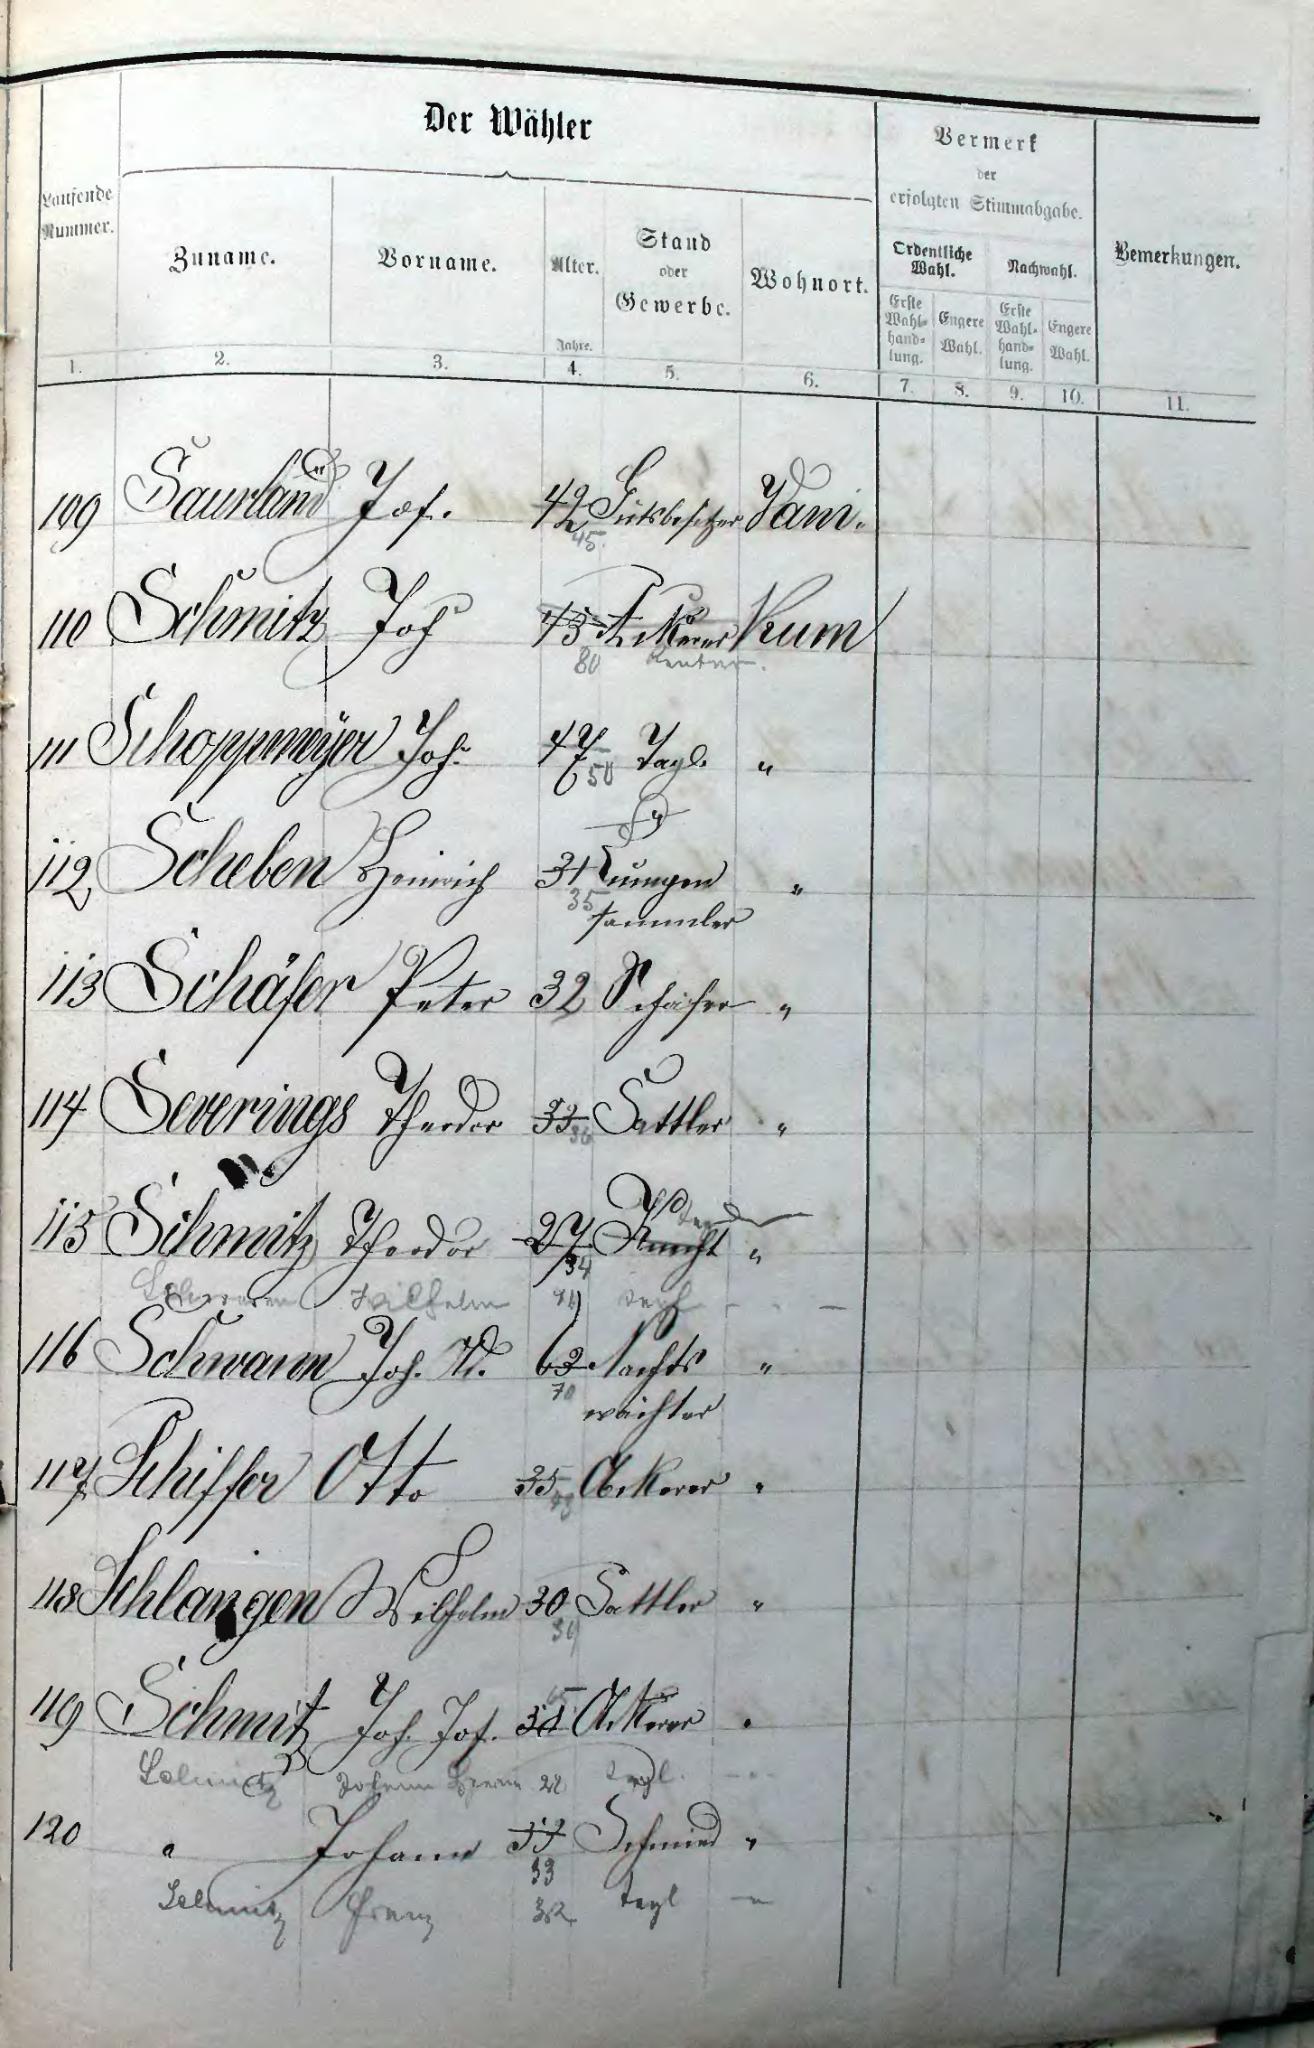 Der Wähler
Vermerk
der
erfolgten Stimmabgabe.
Laufende
Nummer.
Zuname.
Vorname.
Alter.
Jahre.
Stand
oder
Gewerbe.
Wohnort.
Ordentliche
Wahl.
Nachwahl.
Bemerkungen.
Erste
Wahl-
hand-
lung.
Engere
Wahl.
Erste
Wahl-
hand-
lung.
Engere
Wahl.
1. 2. 3. 4. 5. 6. 7. 8. 9. 10. 11.
109 Saurland Jos. 42 Gutsbesitzer
45
110 Schmitz Joh 73 Ackerer
80 Rentner
111 Schoppmeÿer Joh. 47 Tagl. "
50
112 Scheben Heinrich 31 "
35 sammler
113 Schäfer Peter 32 Schäfer "
114 Severings Theodor 33 Sattler "
36
115 Schmitz Theodor 27 Knecht "
34
Wilhelm
116 Schwann Joh. W. 63 Nachts "
70 wächter
117 Schiffer Otto 35 Ackerer "
118 Schlangen Wilhelm 30 Sattler "
119 Schmitz Joh. Jos. Ackerer "
Schmitz Johann 22 Tagl.
120 " Johann 33 Schmied "
33
Schmitz Franz 32 Tagl "